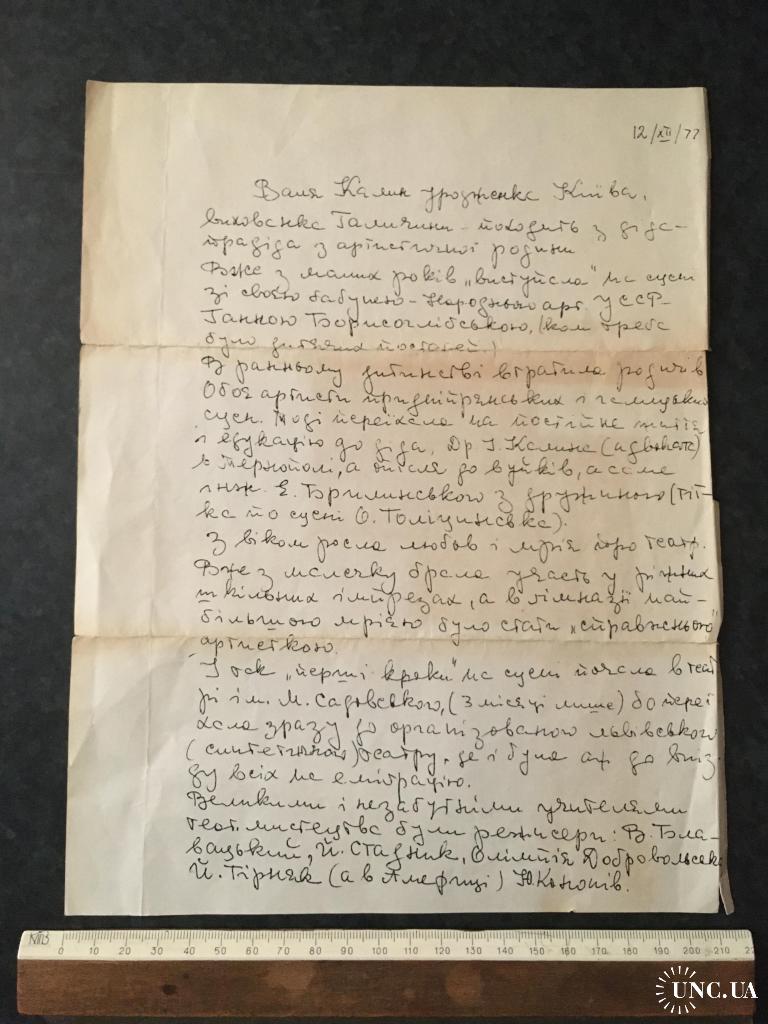 12/XII/77
Валя Калин уродженка Київа,
вихованка Галичини - походить з діда-
прадіда з артистичної родини
Вже з малих років „виступала" на сцені
зі своєю бабунею - Народньою арт. УССР -
Ганною Борисоглібською, (коли треба
було дитячих постатей.)
В ранньому дитинстві втратила родичів
Обоє артисти придніпрянських і галицьких
сцен. Тоді переїхала на постійне життя
і едукацію до діда, Др І. Калина (адвоката)
в Тернополі, а опісля до вуйків, а саме
інж. Е. Брилинського з дружиною (тіт-
ка по сцені О. Голіцинська).
З віком росла любов і мрія про театр.
Вже з малечку брала участь у ріжних
шкільних імпрезах, а в гімназії най-
більшою мрією було стати „справжньою"
артисткою.
І так „перші кроки" на сцені почала в теат
рі ім. М. Садовського, (3 місяці лише) бо переї
хала зразу до організованого львівського
(синтетичного) театру, де і була аж до виїз
ду всіх на еміграцію.
Великими і незабутніми учителями
теат. мистецтва були режисери: В. Бла-
вацький, Й. Стадник, Олімпія Добровольська
Й. Гірняк (а в Америці) Ю. Кононів.
NШВ
0 10 20 30 40 50 60 70 80 90 100 110 120 130 140 150 160 170 180 190 200 210 22
UNC.UA